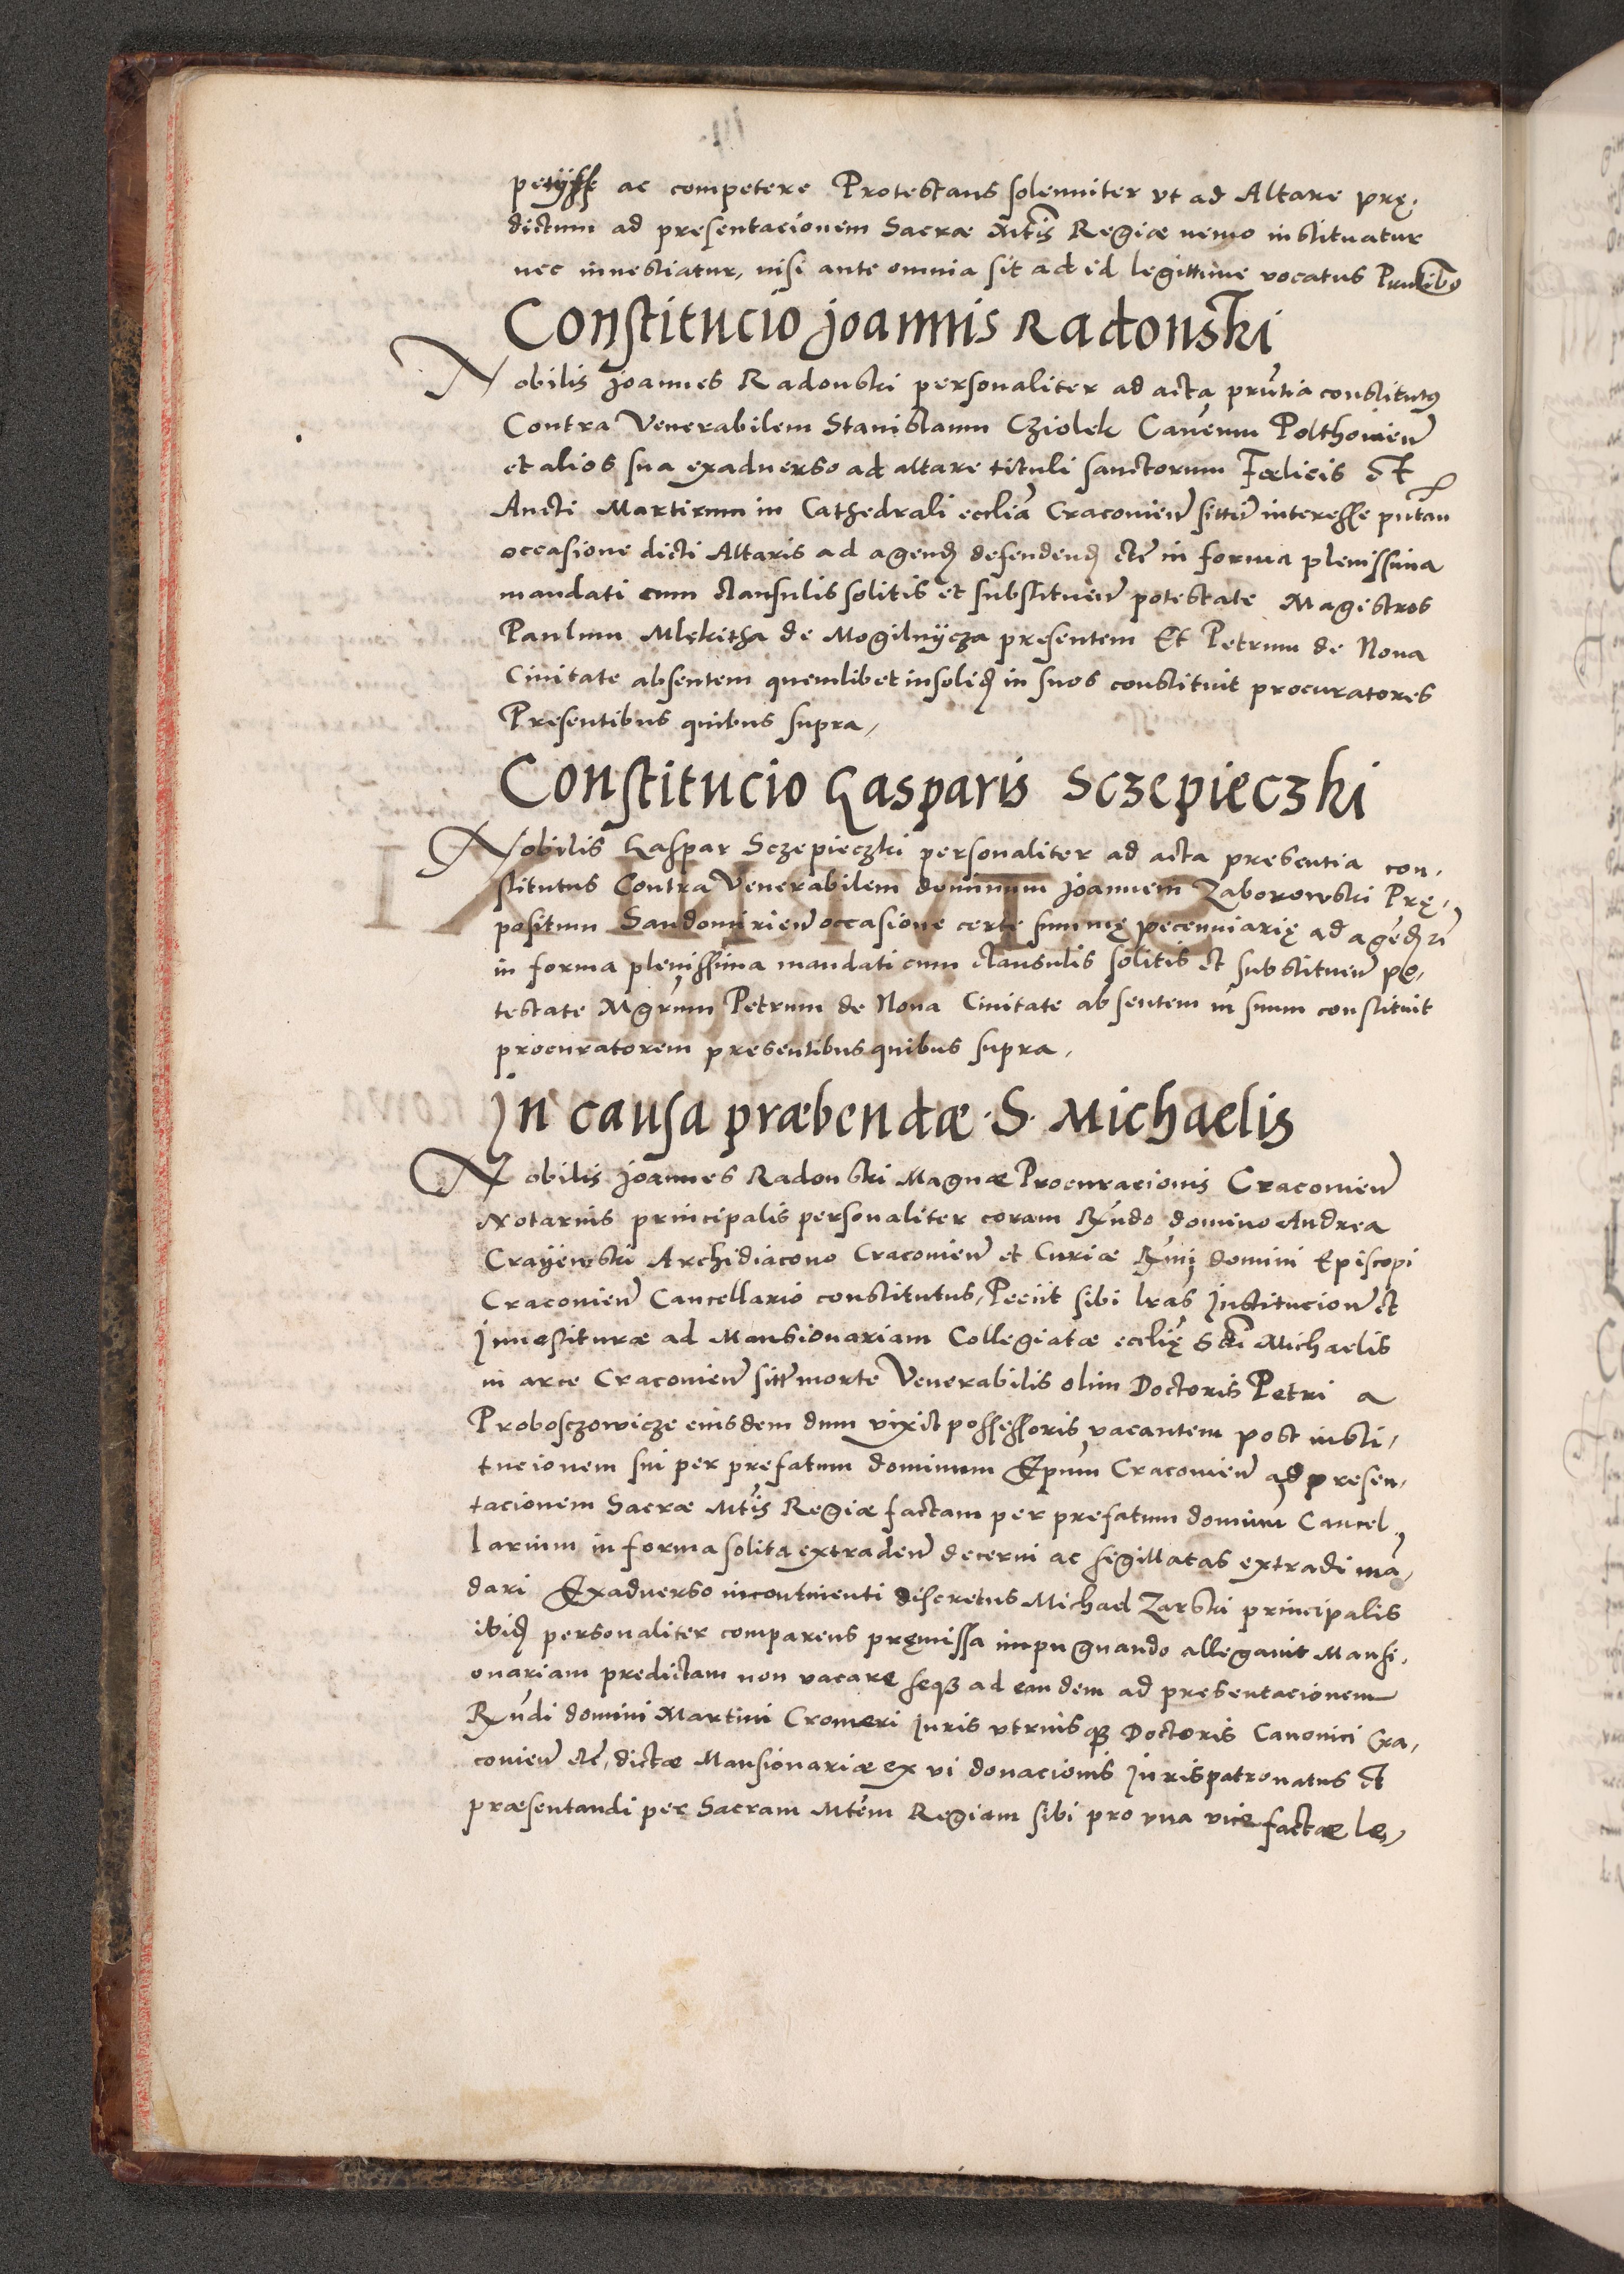 petijsse ac competere Protestans solenniter vt ad Altare prę-
dictum ad presentacionem Sacræ Mtis Regiæ nemo instituatur
nec inuestiatur, nisi ante omnia sit ad id legittime vocatus Pntibus
Constitucio Joannis Radonski
Nobilis Joannes Radonski personaliter ad acta prntia constitutus
Contra Venerabilem Stanislaum Cziolek Canenm Polthouien
et alios sua exaduerso ad altare tituli sanctorum Fælicis Et
Aucti Martirum in Cathedrali ecclia Cracouien sittum interesse putan
occasione dicti Altaris ad agend defendend etc in forma plenissima
mandati cum clausulis solitis et substituen potestate Magistros
Paulum Mlękitha de Mogilnijcza presentem Et Petrum de Noua
Ciuitate absentem quemlibet insolid in suos constituit procuratores
Presentibus quibus supra,
Constitucio Gasparis Sczepieczki
Nobilis Gaspar Sczepieczki personaliter ad acta presentia con-
stitutus Contra Venerabilem dominum Joannem Zaborowski Prę-
positum Sandomirien occasione certe summę pecunniarię ad agend
in forma plenissima mandati cum clausulis solitis et substituen po-
testate Mgrum Petrum de Noua Ciuitate absentem in suum constituit
procuratorem presentibus quibus supra,
In causa præbendæ S. Michaelis
Nobilis Joannes Radonski Magnæ Procuracionis Cracouien
Notarius principalis personaliter coram Rndo domino Andrea
Crayewski Archidiacono Cracouien et Curiæ Rmi domini Episcopi
Cracouien Cancellario constitutus, Peciit sibi lras Institucion et
Inuestituræ ad Mansionariam Collegiatæ ecclię Scti Michaelis
in arce Cracouien sitt morte Venerabilis olim Doctoris Petri a
Proboszczowicze eiusdem dum vixit possessoris vacantem post insti-
tucionem sui per prefatum dominum Epum Cracouien ad presen-
tacionem Sacræ Mtis Regiæ factam per prefatum dominum Cancel-
larium in forma solita extraden decerni ac segillatas extradi man-
dari Exaduerso incontinenti discretus Michael Zarski principalis
ibid personaliter comparens pręmissa impugnando allegauit Mansi-
onariam predictam non vacare seque ad eandem ad presentacionem
Rndi domini Martini Cromeri Iuris vtriusque Doctoris Canonici Cra-
couien etc, dictæ Mansionariæ ex vi donacionis Jurispatronatus et
præsentandi per Sacram Mtem Regiam sibi pro vna vice factæ le-